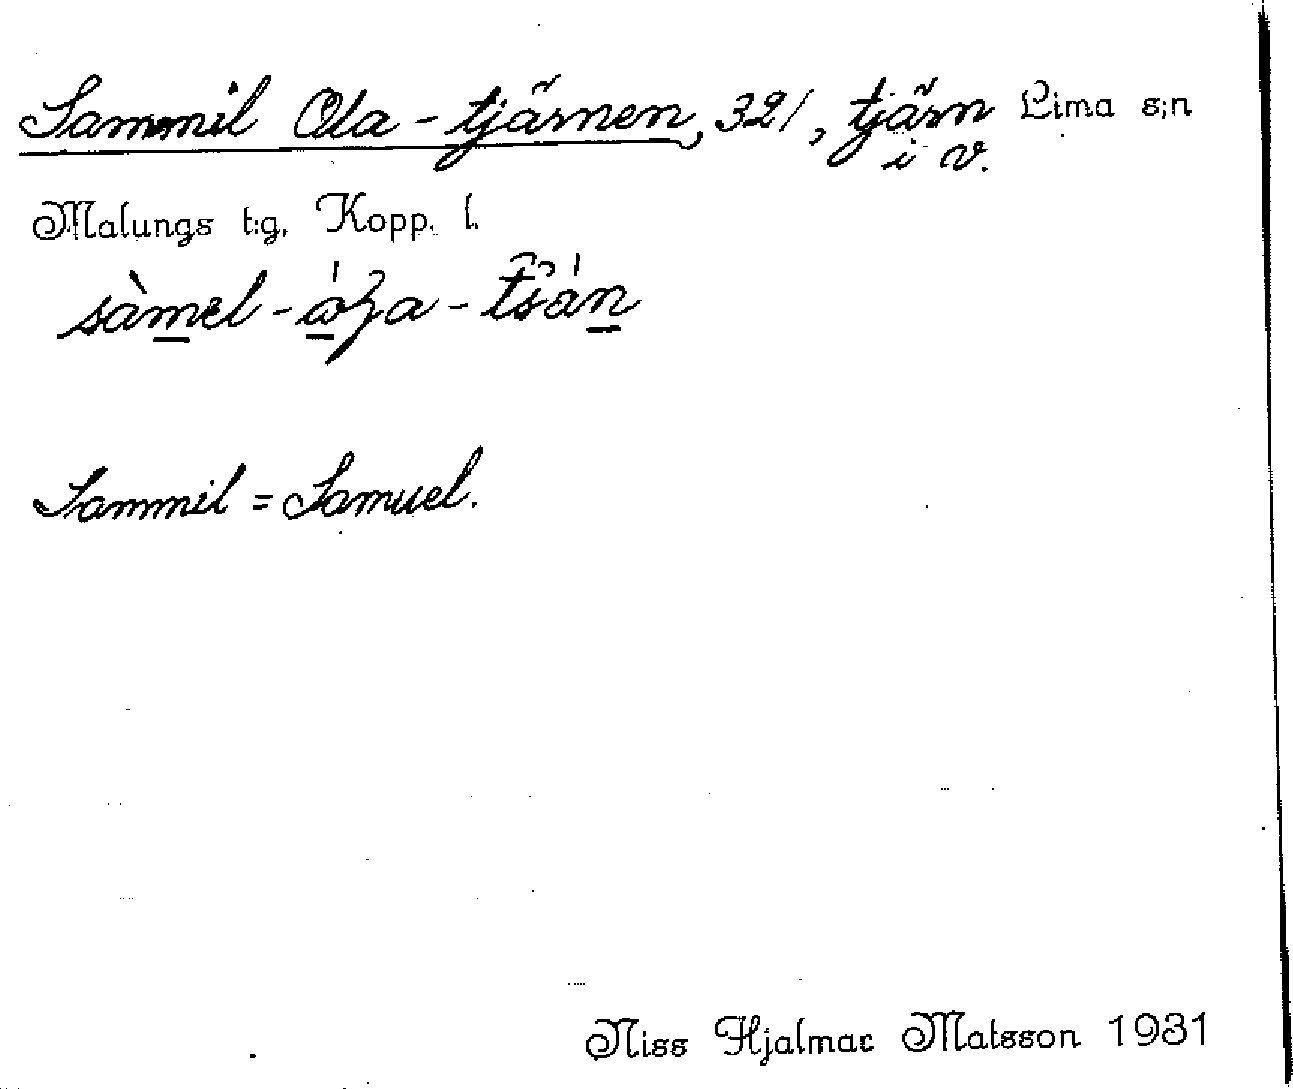 Sammil Ola-tjärnen, 321, tjärn Lima s:n
i v.
Malungs t:g, Kopp. l.
Sammil = Samuel.
Niss Hjalmar Matsson 1931